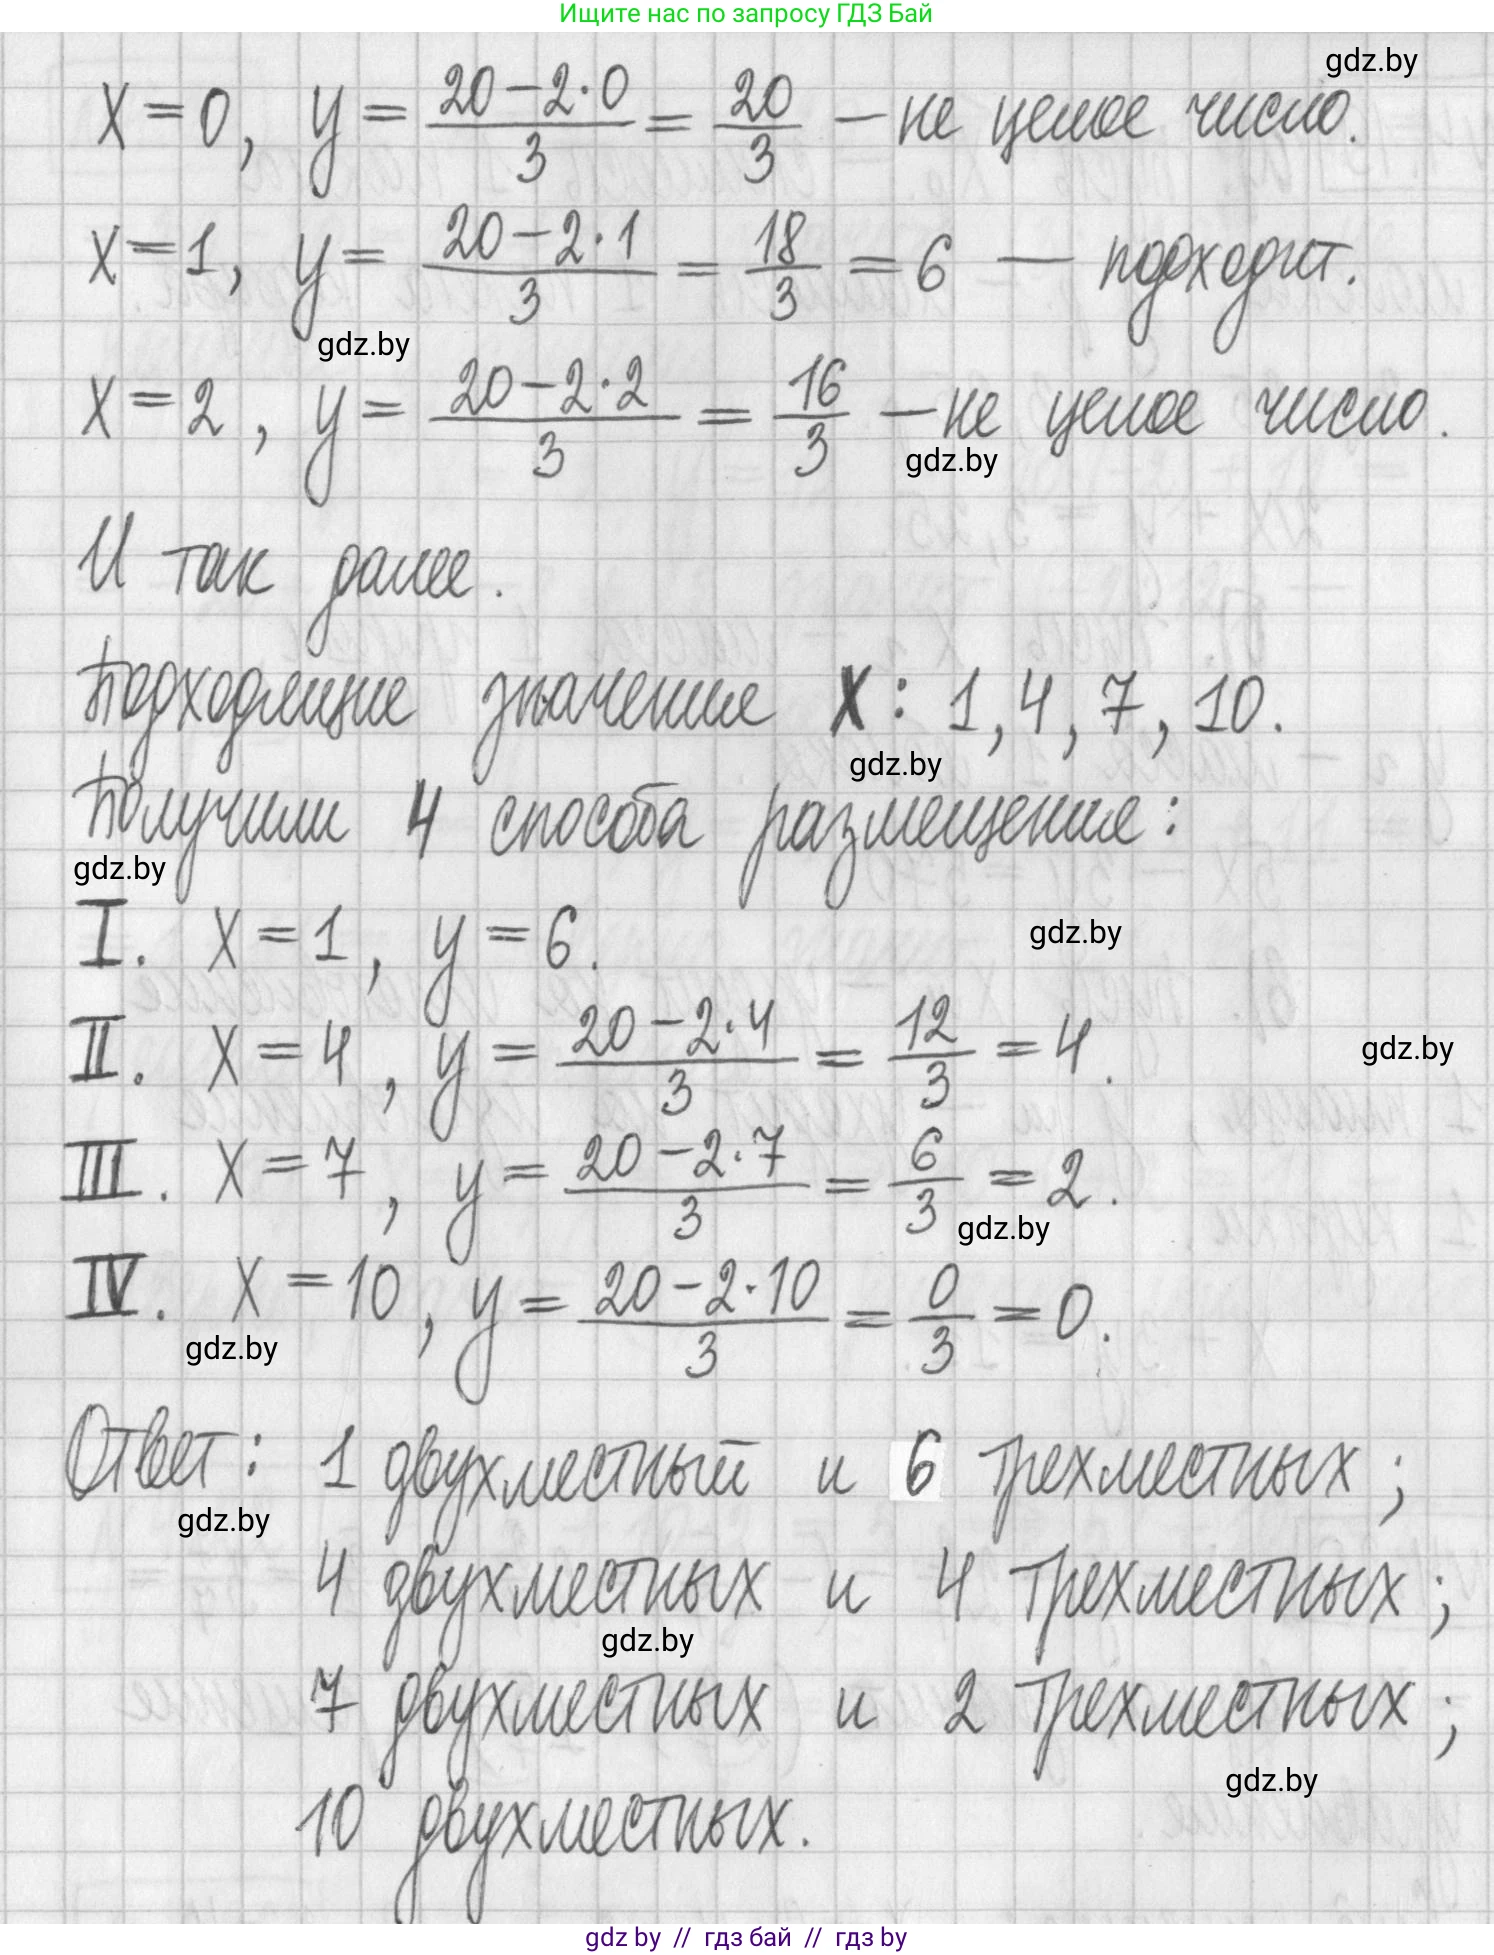 Ищите нас по запросу ГДЗ Бай
gdz.by
x=0, y= (20-2·0)/3 = 20/3 — не целое число.
x=1, y= (20-2·1)/3 = 18/3 = 6 — подходит.
gdz.by
x=2, y= (20-2·2)/3 = 16/3 — не целое число.
gdz.by
И так далее.
Подходящие значения x: 1, 4, 7, 10.
gdz.by
Получили 4 способа размещения:
gdz.by
I. x=1, y=6.
gdz.by
II. x=4, y= (20-2·4)/3 = 12/3 = 4.
gdz.by
III. x=7, y= (20-2·7)/3 = 6/3 = 2.
gdz.by
IV. x=10, y= (20-2·10)/3 = 0/3 = 0.
gdz.by
Ответ: 1 двухместный и 6 трехместных;
gdz.by
4 двухместных и 4 трехместных;
gdz.by
7 двухместных и 2 трехместных;
gdz.by
10 двухместных.
gdz by // гдз бай // гдз by